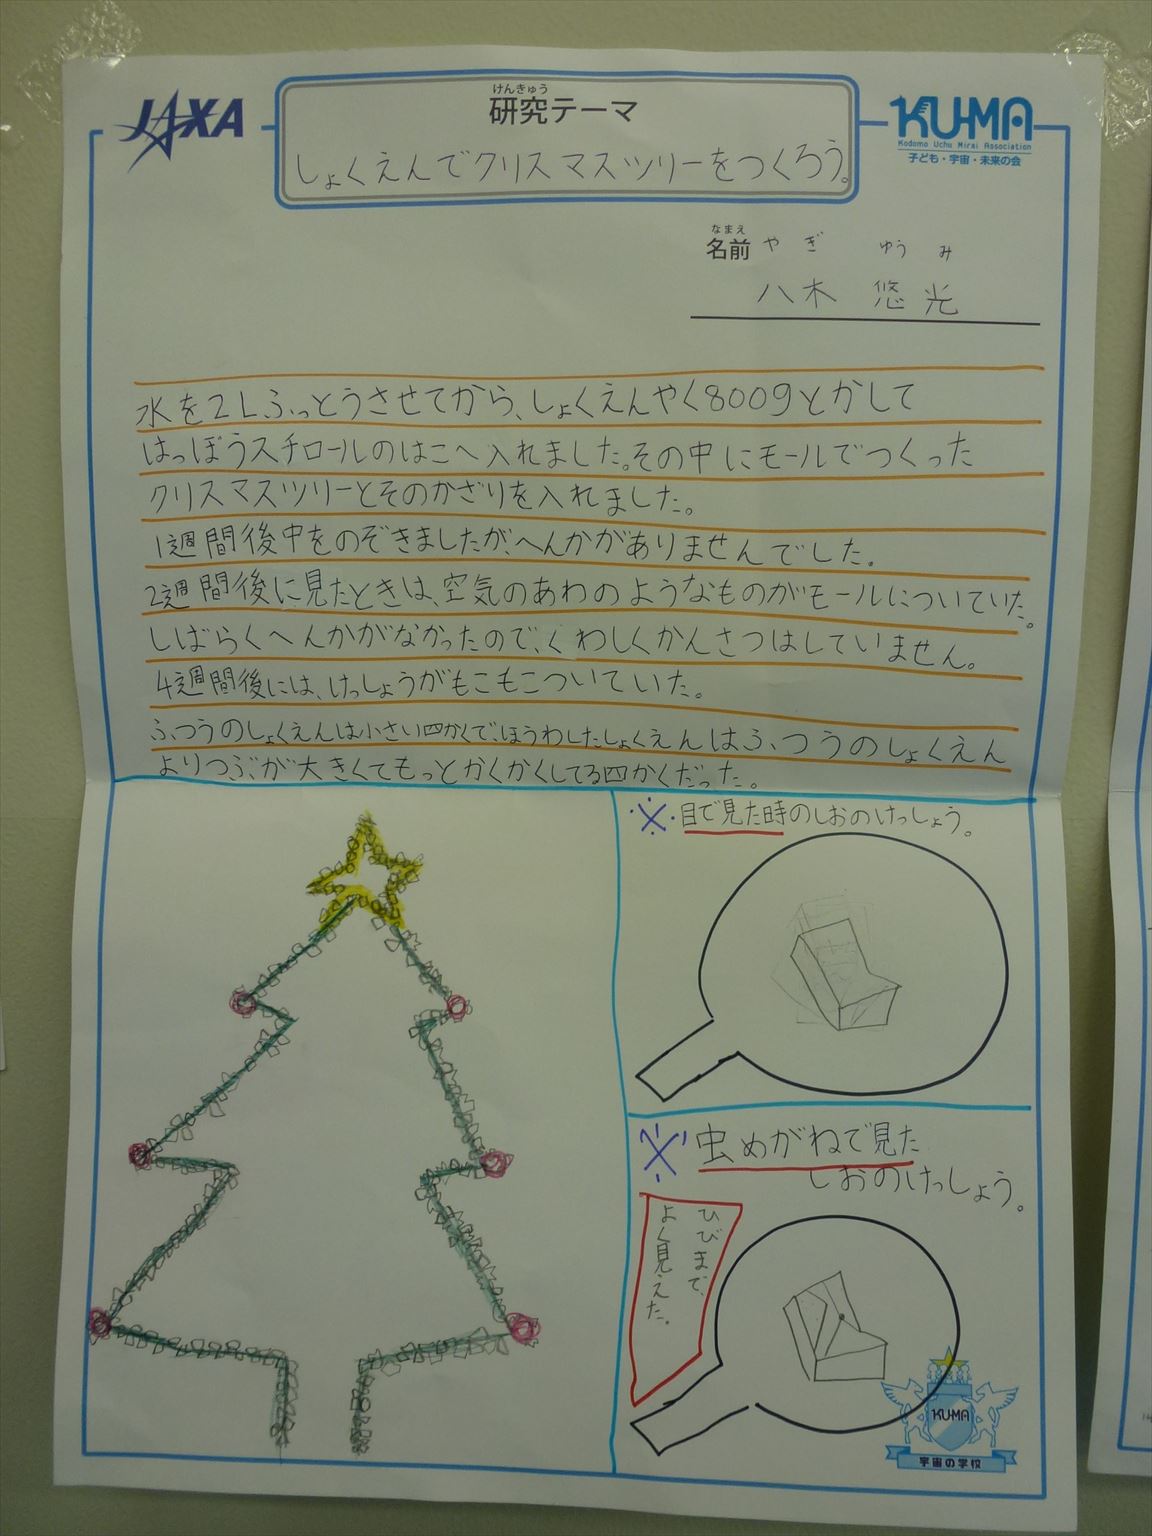 JAXA
けんきゅう
研究テーマ
しょくえんでクリスマスツリーをつくろう。
KU-MA
Kodomo Uchu Mirai Association
子ども・宇宙・未来の会
なまえ
名前
やぎ ゆうみ
八木 悠光
水を2Lふっとうさせてから、しょくえんやく800gとかして
はっぽうスチロールのはこへ入れました。その中にモールでつくった
クリスマスツリーとそのかざりを入れました。
1週間後中をのぞきましたが、へんかがありませんでした。
2週間後に見たときは、空気のあわのようなものがモールについていた。
しばらくへんかがなかったので、くわしくかんさつはしていません。
4週間後には、けっしょうがもこもこついていた。
ふつうのしょくえんは小さい四かくで、ほうわしたしょくえんはふつうのしょくえん
よりつぶが大きくてもっとかくかくしてる四かくだった。
※目で見た時のしおのけっしょう。
※虫めがねで見た
しおのけっしょう。
ひびまで、
よく見えた。
KU-MA
宇宙の学校